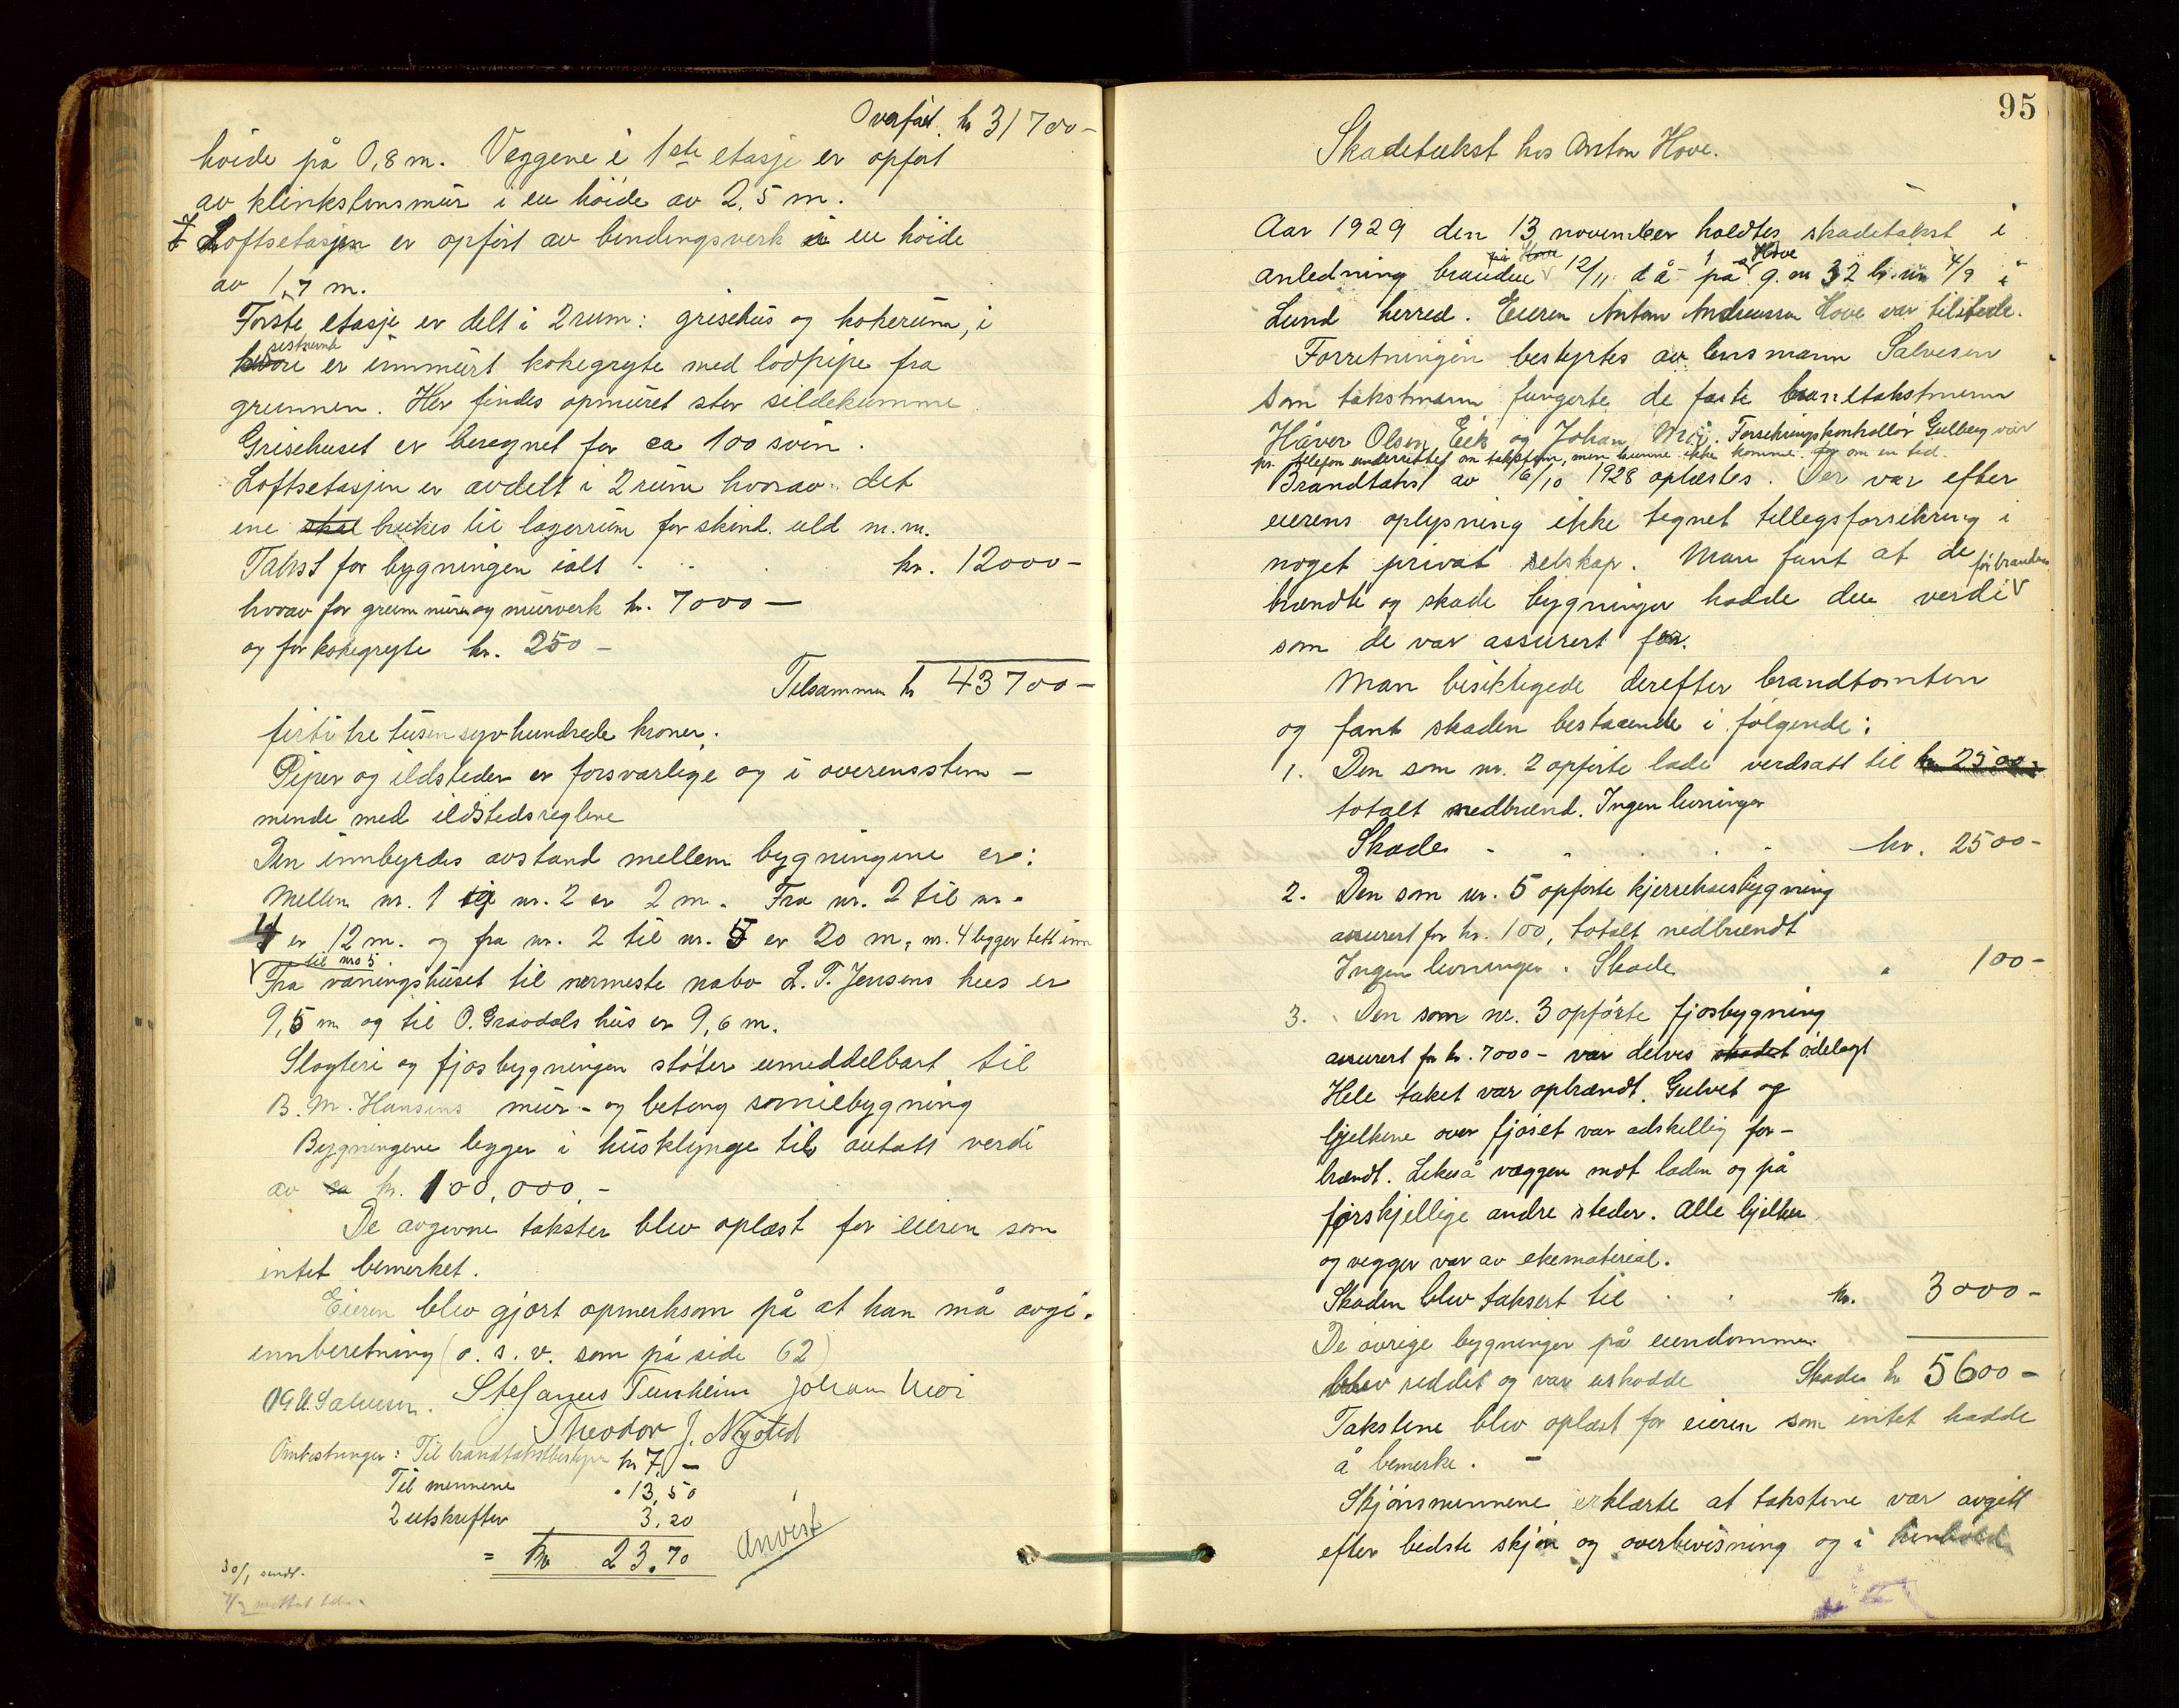 Overført. kr 31700-
høide på 0,8 m. Veggene i 1ste etasje er opført
av klinkstensmur i en høide av 2,5 m.
Loftsetasjen er opført av bindingsverk i en høide
av 1,7 m.
Første etasje er delt i 2 rum: grisehus og kokerum, i
sistnevnte
hvori er innmurt kokegryte med lodpipe fra
grunnen. Her findes opmuret stor sildekumme
Grisehuset er beregnet for ca 100 svin.
Loftsetasjen er avdelt i 2 rum hvorav det
ene skal brukes til lagerrum for skind, uld m.m.
Takst for bygningen ialt kr. 12000-
hvorav for grunnmur og murverk kr. 7000-
og for kokegryte kr. 250-
Tilsammen kr 43700-
førti tre tusen syv hundrede kroner.
Piper og ildsteder er forsvarlige og i overensstem-
mende med ildstedsreglene
Den innbyrdes avstand mellem bygningene er:
Mellem nr. 1 og nr. 2 er 2 m. Fra nr. 2 til nr.
4 er 12 m. og fra nr. 2 til nr. 5 er 20 m, nr. 4 ligger tett inn
til nro 5.
Fra våningshuset til nærmeste nabo L. T. Jensens hus er
9,5 m og til O. Gravdals hus er 9,6 m.
Slagteri og fjøsbygningen støter umiddelbart til
B. M. Hansens mur- og betong smiebygning
Bygningene ligger i husklynge til antatt verdi
av ca kr. 100,000,-
De avgivne takster blev oplæst for eieren som
intet bemerket.
Eieren blev gjort opmerksom på at han må avgi
innberetning (o. s. v. som på side 62)
Salvesen. Stefanus Tunheim Johan Moi
Theodor J. Nysted
Omkostninger: Til brandtakstbestyrer kr 7,-
Til mennene " 13,50
2 utskrifter 3,20
= Kr 23.70
Anvist
30/1 sendt.
95
Skadetakst hos Anton Hove.
Aar 1929 den 13 november holdtes skadetakst i
på Hove Hove
anledning branden 12/11 d å på g. nr 32 br. nr 4/9 i
Lund herred. Eieren Anton Andreassen Hove var tilstede.
Forretningen bestyrtes av lensmann Salvesen
Som takstmenn fungerte de faste branntakstmenn
Håver Olsen Eik og Johan Moi. Forsikringskontrollør Gulberg var
pr. telefon underrettet om taksten, men kunne ikke komme.
Brandtakst av 16/10 1928 oplæstes. Der var efter
eierens oplysning ikke tegnet tillegsforsikring i
noget privat selskap. Man fant at de
før branden
brændte og skade bygninger hadde den verdi
som de var assurert for.
Man besiktigede derefter brandtomten
og fant skaden bestaaende i følgende:
1. Den som nr. 2 opførte lade verdsatt til kr. 2500-
totalt nedbrænd. Ingen levninger
Skade kr. 2500-
2. Den som nr. 5 opførte kjerrehusbygning
assurert for kr. 100, totalt nedbrændt
Ingen levninger. Skade " 100-
3. Den som nr. 3 opførte fjøsbygning
assurert for kr. 7000- var delvis skadet ødelagt
Hele taket var opbrændt. Gulvet og
bjelkene over fjøset var adskillig for-
brændt. Likeså væggen mot laden og på
forskjellige andre steder. Alle bjelker
og vegger var av ekemateriel.
Skaden blev taksert til kr. 3000-
De øvrige bygninger på eiendommen
blev reddet og var uskadde Skade kr 5600-
Takstene blev oplæst for eieren som intet hadde
å bemerke. -
Skjønsmennene erklærte at takstene var avgitt
efter bedste skjøn og overbevisning og i henhold